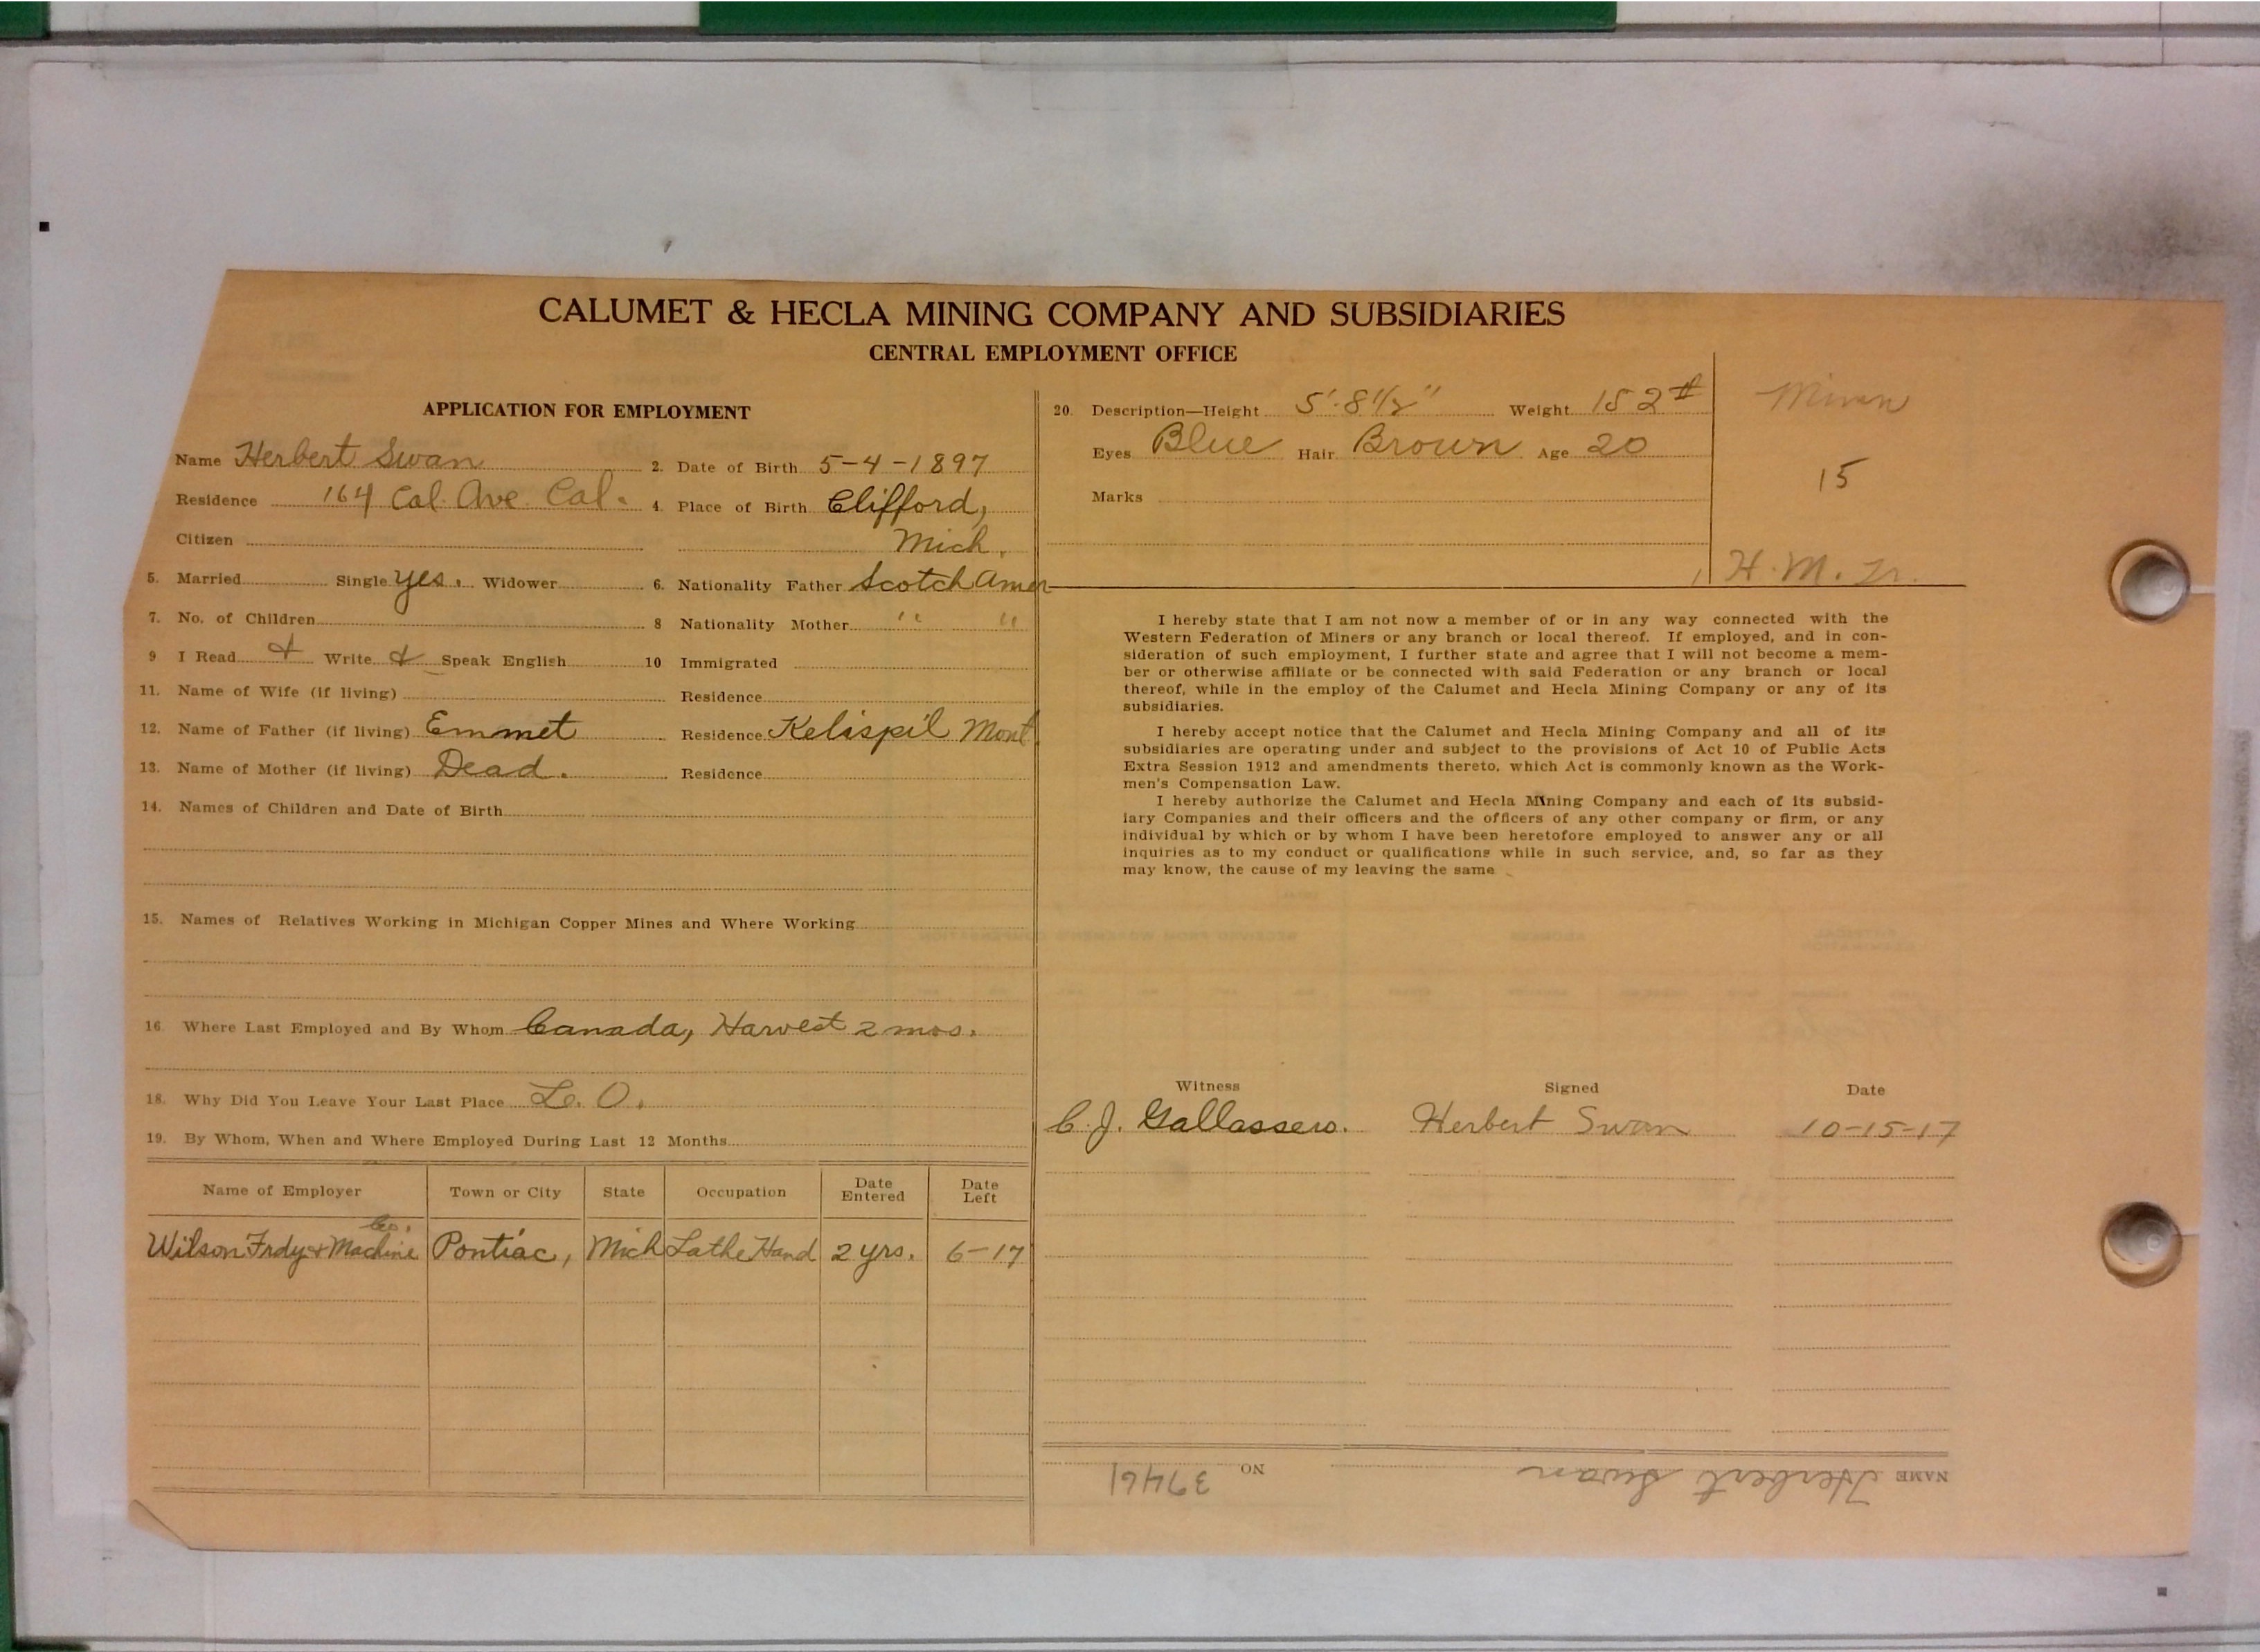 CALUMET & HECLA MINING COMPANY AND SUBSIDIARIES
CENTRAL EMPLOYMENT OFFICE
APPLICATION FOR EMPLOYMENT
Name Herbert Swan 2. Date of Birth 5-4-1897
Residence 164 Cal. Ave. Cal. 4. Place of Birth Clifford,
Citizen Mich.
5. Married Single yes. Widower 6. Nationality Father Scotch Amer
7. No. of Children 8 Nationality Mother " "
9 I Read & Write & Speak English 10 Immigrated
11. Name of Wife (if living) Residence
12. Name of Father (if living) Emmet Residence Kelispil Mont.
13. Name of Mother (if living) Dead. Residence
14. Names of Children and Date of Birth
15. Names of Relatives Working in Michigan Copper Mines and Where Working
16. Where Last Employed and By Whom Canada, Harvest 2 mos.
18. Why Did You Leave Your Last Place L. O.
19. By Whom, When and Where Employed During Last 12 Months
Name of Employer Town or City State Occupation Date Entered Date Left
Wilson Frdy & Machine Co. Pontiac, Mich Lathe Hand 2 yrs. 6-17
20. Description—Height 5'-8 1/2" Weight 152#
Eyes Blue Hair Brown Age 20
Marks
15
H. M. Jr.
I hereby state that I am not now a member of or in any way connected with the
Western Federation of Miners or any branch or local thereof. If employed, and in con-
sideration of such employment, I further state and agree that I will not become a mem-
ber or otherwise affiliate or be connected with said Federation or any branch or local
thereof, while in the employ of the Calumet and Hecla Mining Company or any of its
subsidiaries.
I hereby accept notice that the Calumet and Hecla Mining Company and all of its
subsidiaries are operating under and subject to the provisions of Act 10 of Public Acts
Extra Session 1912 and amendments thereto, which Act is commonly known as the Work-
men's Compensation Law.
I hereby authorize the Calumet and Hecla Mining Company and each of its subsid-
iary Companies and their officers and the officers of any other company or firm, or any
individual by which or by whom I have been heretofore employed to answer any or all
inquiries as to my conduct or qualifications while in such service, and, so far as they
may know, the cause of my leaving the same
Witness Signed Date
C. J. Gallassero. Herbert Swan 10-15-17
NAME Herbert Swan NO 37461